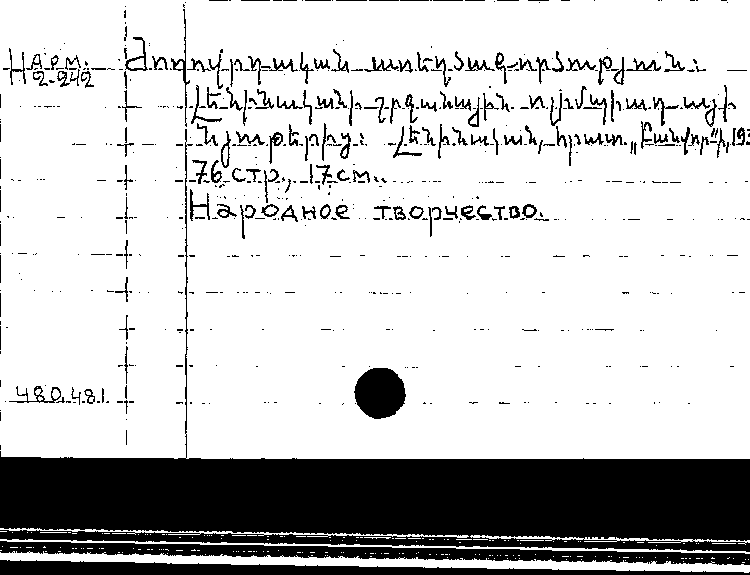 Н арм.
2-242
Ժողովրդական ստեղծագործություն:
Լենինականի շրջանային օլիմպիադայի
նյութերից: Լենինական, հրատ. „Բանվոր", 193
76 стр., 17 см..
Народное творчество.
480.481